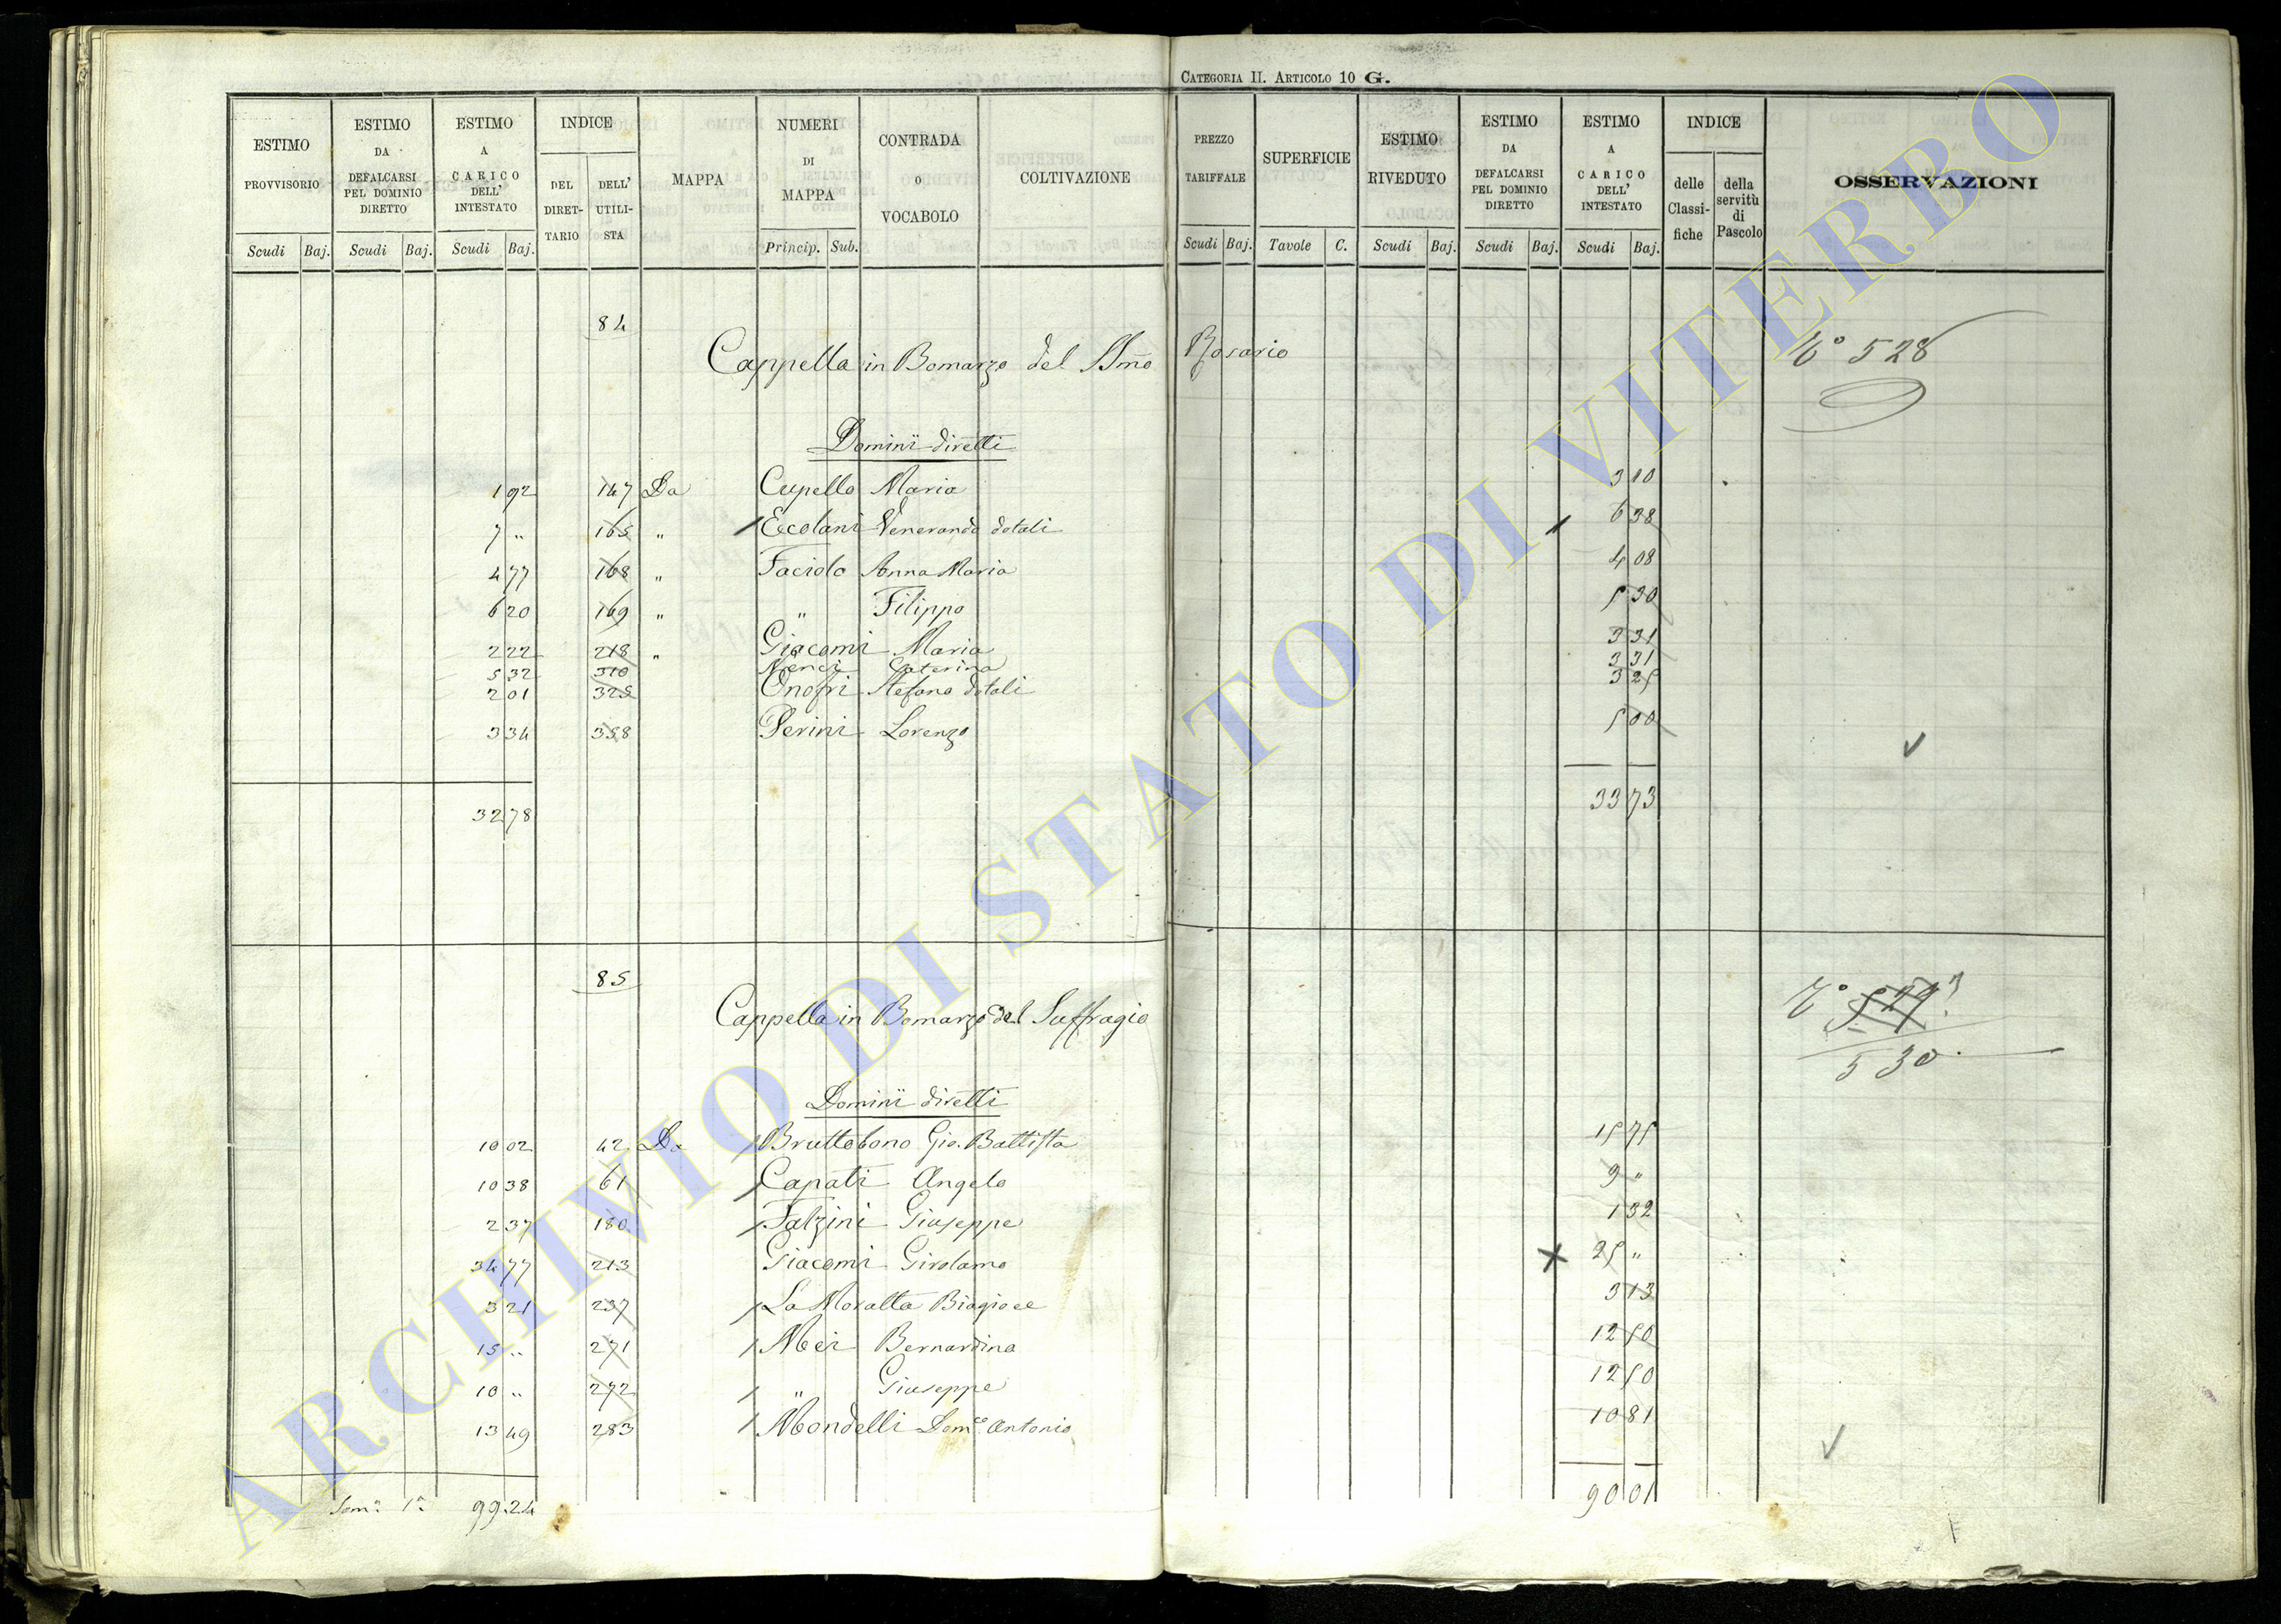 CATEGORIA II. ARTICOLO 10 G.
ESTIMO PROVVISORIO
ESTIMO DA DEFALCARSI PEL DOMINIO DIRETTO
ESTIMO A CARICO DELL' INTESTATO
INDICE
DEL DIRETTARIO
DELL' UTILISTA
MAPPA
NUMERI DI MAPPA
CONTRADA O VOCABOLO
COLTIVAZIONE
PREZZO TARIFFALE
SUPERFICIE
ESTIMO RIVEDUTO
ESTIMO DA DEFALCARSI PEL DOMINIO DIRETTO
ESTIMO A CARICO DELL' INTESTATO
INDICE
delle Classifiche
della servitù di Pascolo
OSSERVAZIONI
Scudi Baj. Scudi Baj. Scudi Baj. Princip. Sub. Scudi Baj. Tavole C. Scudi Baj. Scudi Baj. Scudi Baj.
84
Cappella in Bomarzo del SSmo Rosario N° 528
Dominii diretti
1 92 147 Da Cupello Maria 3 10
7 " 165 " Ercolani Veneranda dotali 6 38
4 77 168 " Faciolo Anna Maria 4 08
6 20 169 " " Filippo 5 30
2 22 218 " Giacomi Maria 3 31
5 32 310 Nenci Caterina 3 31
2 01 325 Onofri Stefano dotali 3 25
3 34 358 Perini Lorenzo 5 00
32 78 33 73
85
Cappella in Bomarzo del Suffragio N° 529
530
Dominii diretti
10 02 42 Da Bruttobono Gio. Battista 15 75
10 38 61 Capati Angelo 9 "
2 37 180 Falzini Giuseppe 1 32
34 77 213 Giacomi Girolamo 25 "
3 21 237 La Moratta Biagio ec 3 13
15 " 271 Mei Bernardina 12 50
10 " 272 " Giuseppe 12 50
13 49 283 Mondelli Dom.co Antonio 10 81
Somª 1ª 99.24 90 01
ARCHIVIO DI STATO DI VITERBO